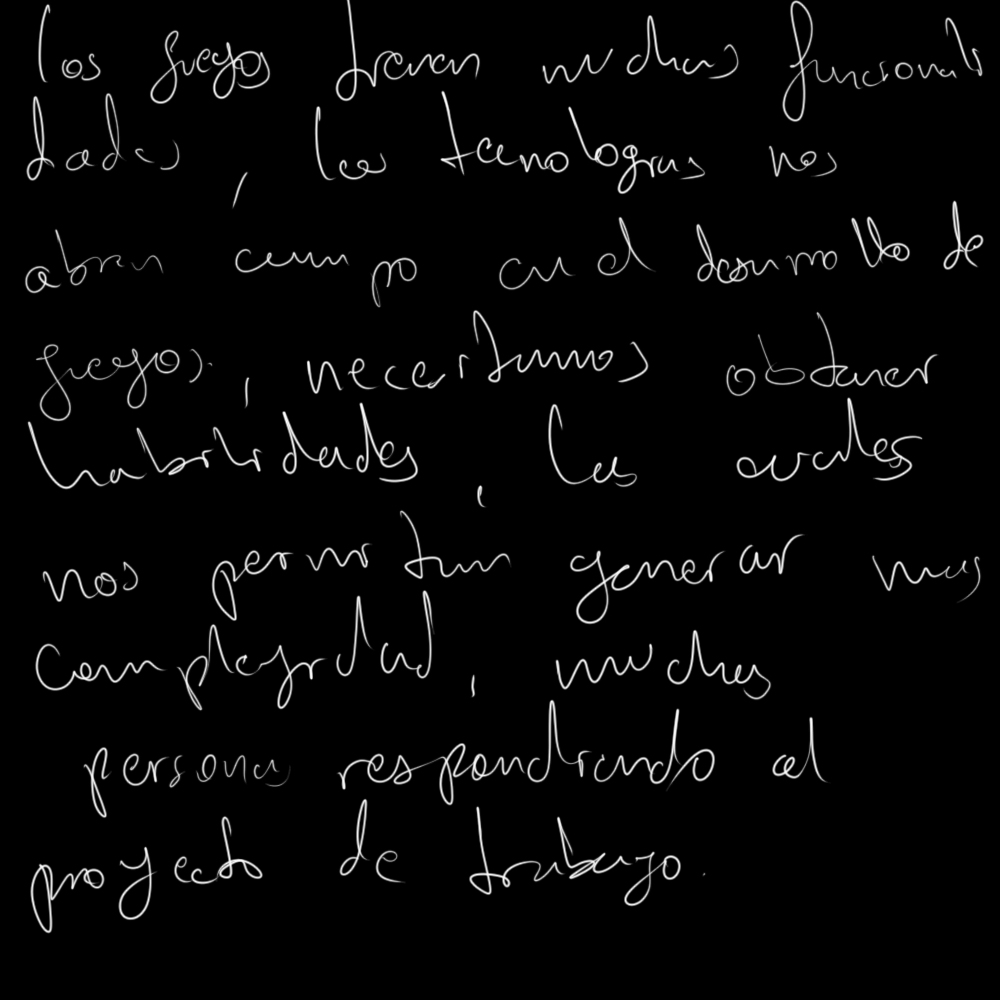 los juegos tienen muchas funcionali
dades, las tecnologias nos
abren campo en el desarrollo de
juegos, necesitamos obtener
habilidades, las cuales
nos permitan generar mas
complejidad, muchas
persona respondiendo al
proyecto de trabajo.